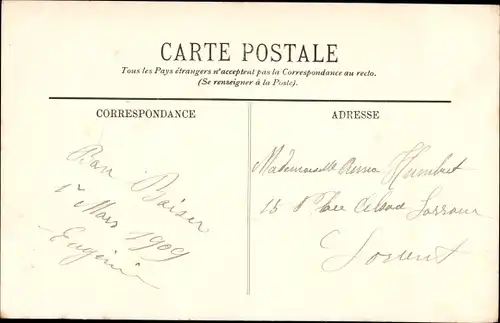 CARTE POSTALE
Tous les Pays étrangers n'acceptent pas la Correspondance au recto.
(Se renseigner à la Poste).
CORRESPONDANCE
ADRESSE
Bon Baiser
1er Mars 1909
Eugénie
Mademoiselle Humbert
15
Lorient